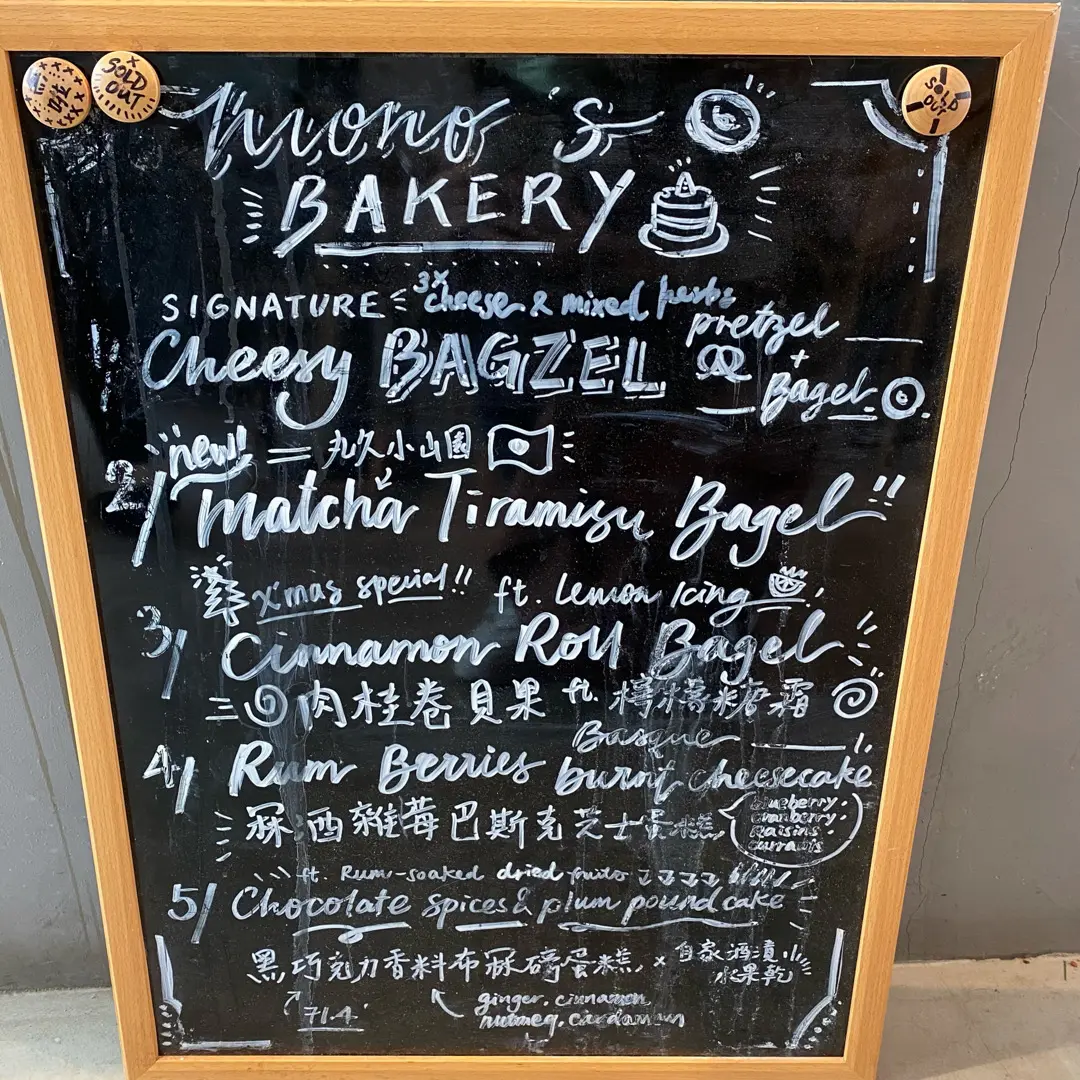 SOLD OUT
SOLD OUT
mono's
BAKERY
SIGNATURE 3x cheese & mixed herbs
Cheesy BAGZEL pretzel + Bagel
new! = 丸久小山園
2/ Matcha Tiramisu Bagel!!
X'mas special!! ft. Lemon Icing
3/ Cinnamon Roll Bagel
肉桂卷貝果 ft. 檸檬糖霜
4/ Rum Berries Basque burnt cheesecake
冧酒雜莓巴斯克芝士蛋糕
blueberry. cranberry. Raisins. currants
ft. Rum-soaked dried fruits
5/ Chocolate spices & plum pound cake
黑巧克力香料布冧磅蛋糕 × 自家酒漬水果乾
71.4
ginger, cinnamon,
nutmeg, cardamon